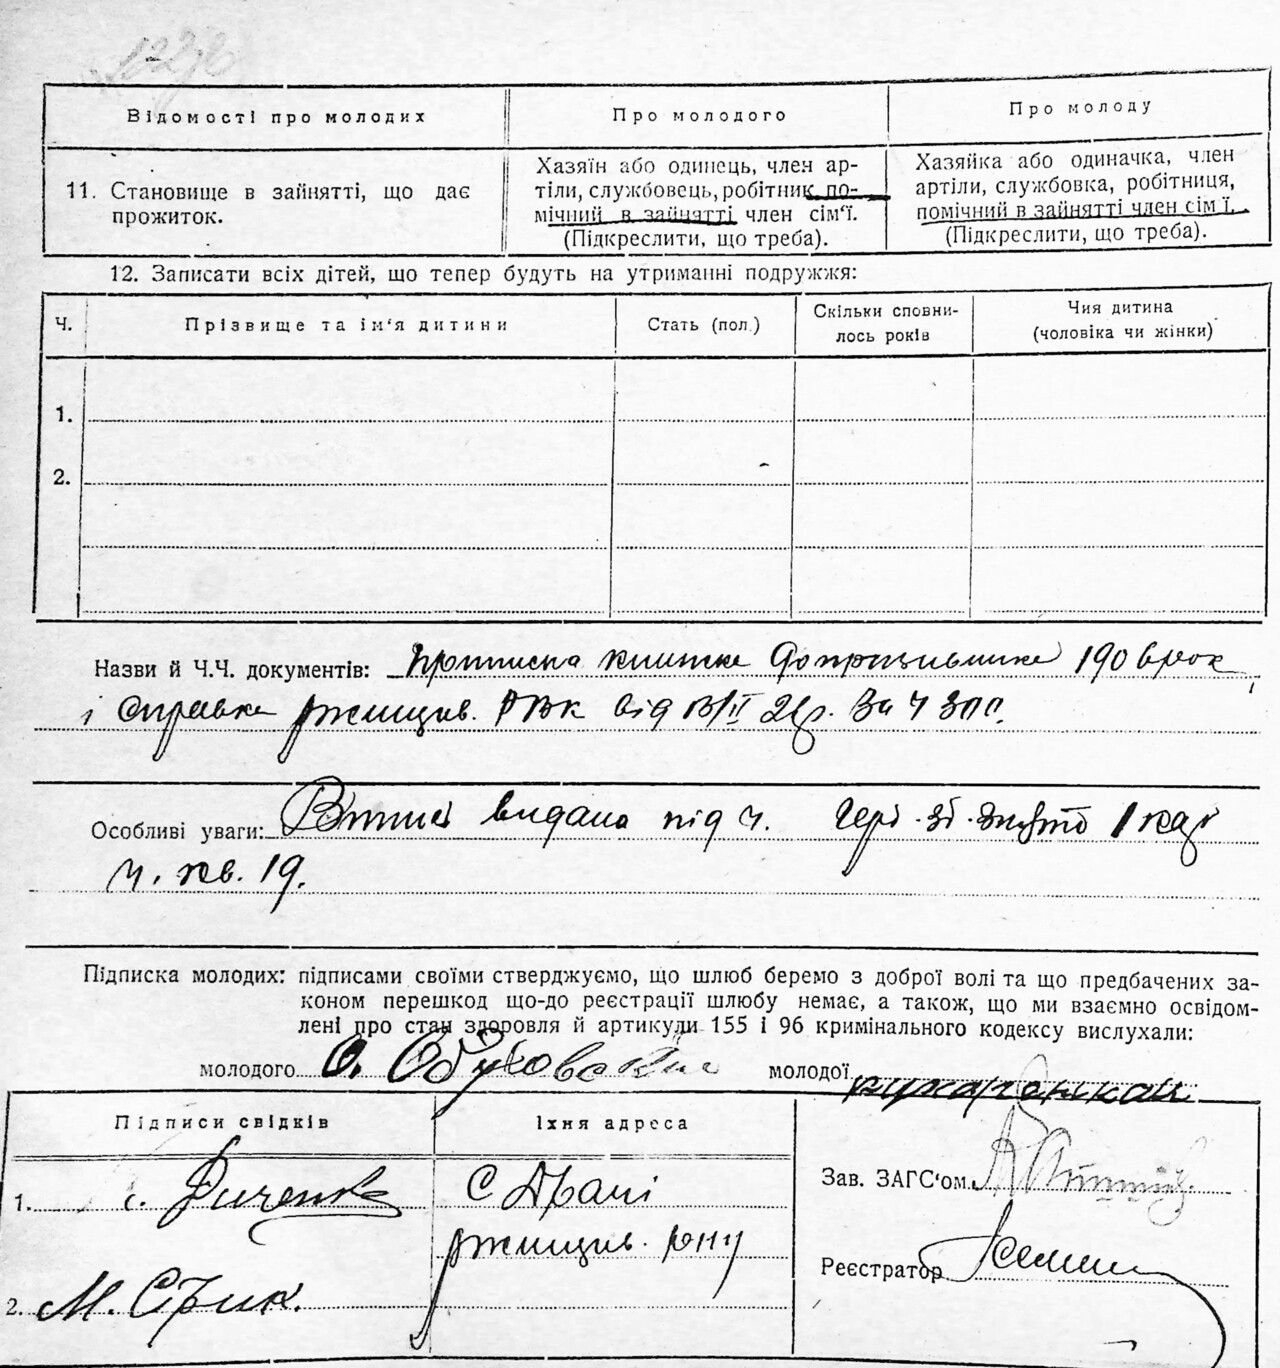 Відомості про молодих
Про молодого
Про молоду
11. Становище в зайнятті, що дає
прожиток.
Хазяїн або одинець, член ар-
тілі, службовець, робітник, по-
мічний в зайнятті член сім'ї.
(Підкреслити, що треба).
Хазяйка або одиначка, член
артілі, службовка, робітниця,
помічний в зайнятті член сім'ї.
(Підкреслити, що треба).
12. Записати всіх дітей, що тепер будуть на утриманні подружжя:
Ч.
Прізвище та ім'я дитини
Стать (пол.)
Скільки сповни-
лось років
Чия дитина
(чоловіка чи жінки)
1.
2.
Назви й Ч.Ч. документів: книжка допризывника
і справка Ржищив. РВК від
Особливі уваги: видано під ч.
ч. кв. 19.
Підписка молодих: підписами своїми стверджуємо, що шлюб беремо з доброї волі та що предбачених за-
коном перешкод що-до реєстрації шлюбу немає, а також, що ми взаємно освідом-
лені про стан здоровля й артикули 155 і 96 кримінального кодексу вислухали:
молодого О. Обуховский молодої
Підписи свідків
Їхня адреса
1.
С
Ржищив. р-ну
2. М.
Зав. ЗАГС'ом
Реєстратор